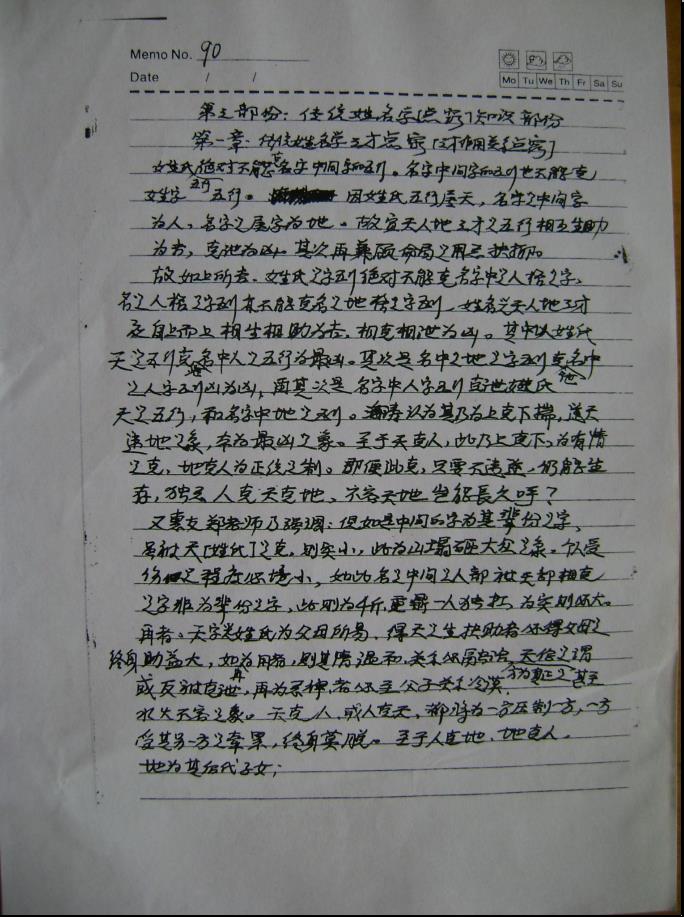 Memo No. 90
Mo Tu We Th Fr Sa Su
Date / /
第五部份：传统姓名学点窍知识部份
第一章：传统姓名学三才点窍[三才作用关系点窍]
如姓氏绝对不能克名字中间字的五行。名字中间字的五行也不能克
如姓字五行五行。因姓氏五行属天，名字之中间字
为人，名字之尾字为地。故宜天人地三才之五行相互生助
为吉，克泄为凶。其次再兼顾命局之用忌扶抑。
故如上所吉，姓氏之字五行绝对不能克名字中之人格之字，
名之人格之字五行亦不能克名之地格之字五行，姓名之天人地三才
宜自上而上相生相助为吉，相克相泄为凶。其中以姓氏
天之五行克名中人之五行为最凶。其次是名中之地之字五行克名中
之人字五行凶为凶，再其次是名字中人字五行克泄姓氏
天之五行，和名字中地之五行。认为其乃为上克下，逆天
逆地之象，亦为最凶之象。至于天克人，此乃上克下，为有情
之克，地克人为正统之制。即便此克，只要不违逆，仍能生
存，独忌人克天克地，不容天地岂能長久呼？
又惠友郑老师乃强调：但如是中间的字为其辈份之字，
虽被天[姓氏]之克，则灾小，此为山塌砸大众之象。似受
伤之程度必境小，如此名之中间之人部被天部相克
之字非为辈份之字，此则为4斤重一人独扛，为灾则必大。
再者。天字米姓氏为父母所易，得天之生扶助者必得父母之
终身助益大，如为用者，则其情温和，关系必属告治，天倍之谓
或反被克泄，再为忌神，者必至父子关系冷漠，方为真正之甚至
水火不容之象。天克人，或人克天，都将为一方压制一方，一方
受其另一方之牵累，终身莫脱。至于人克地，地克人，
地为其后代子女；